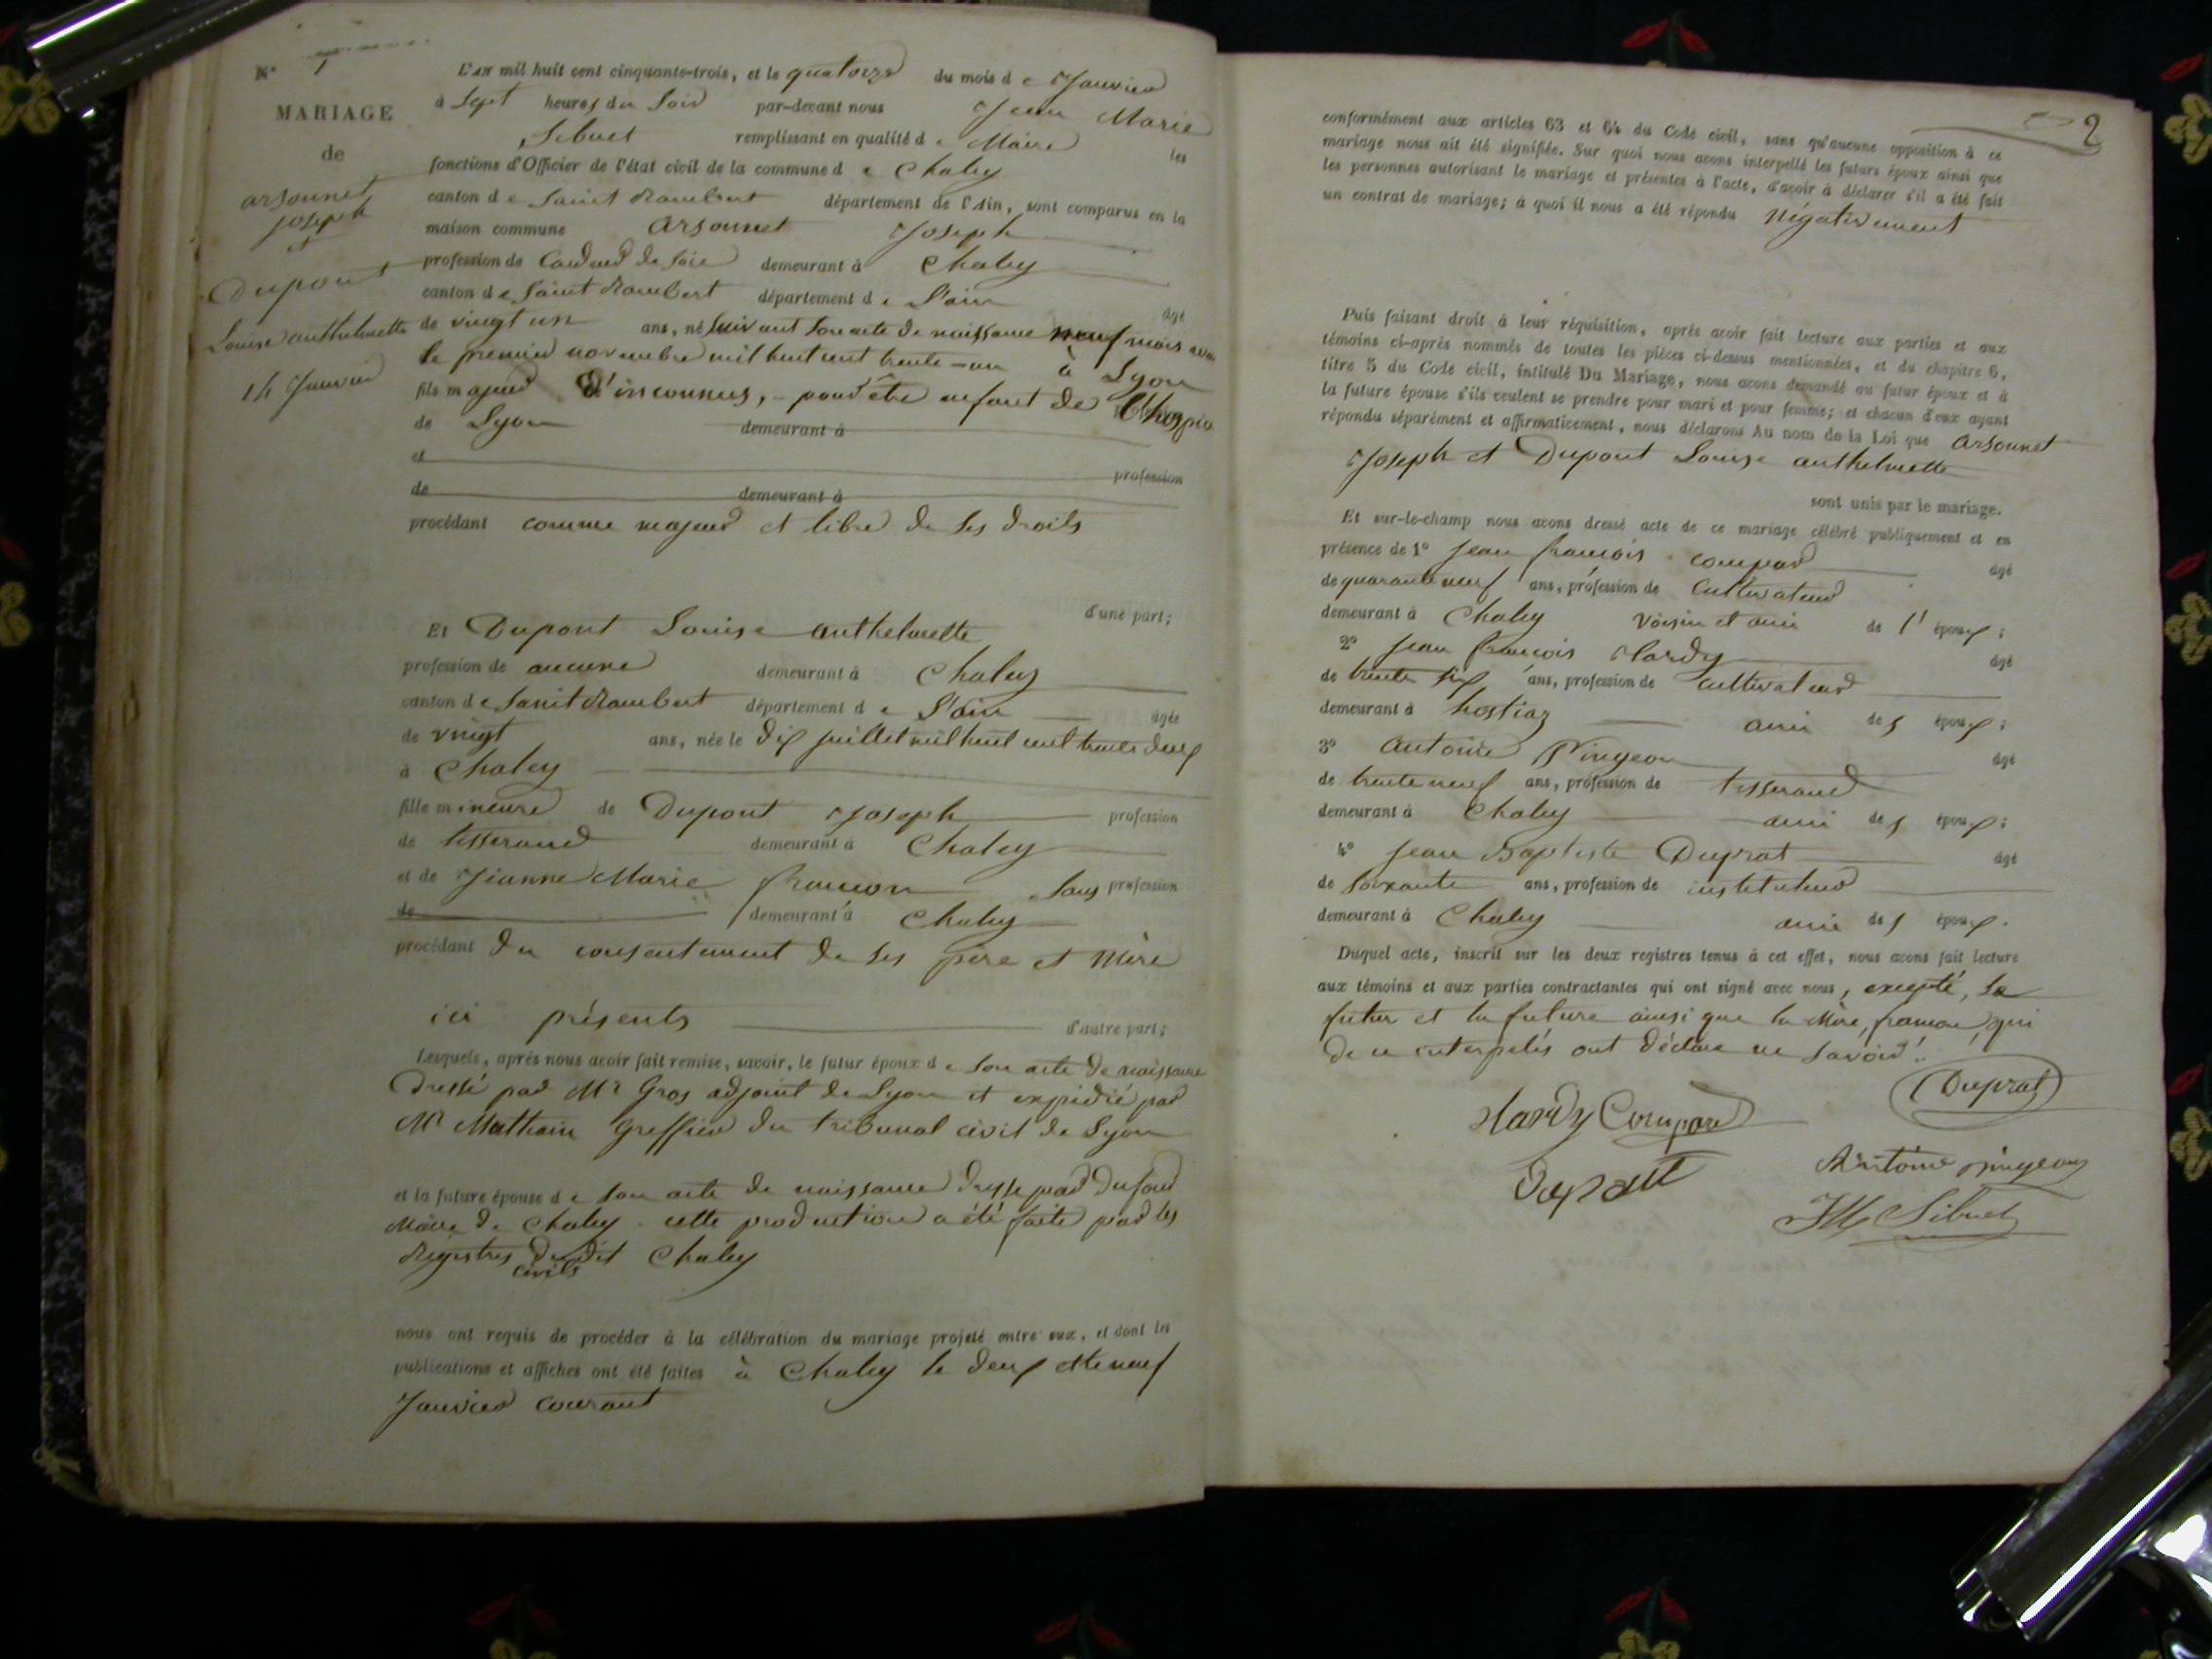 N° 1
MARIAGE
de
arsonnet
joseph
et
Dupont
Louise anthelmette
14 Janvier
L'AN mil huit cent cinquante-trois, et le quatorze du mois de Janvier
à Sept heures du Soir par-devant nous Jean Marie
Sibuet remplissant en qualité de Maire les
fonctions d'Officier de l'état civil de la commune de Chaley
canton de Saint Rambert département de l'Ain, sont comparus en la
maison commune Arsonnet Joseph
profession de Cardeur de Soie demeurant à Chaley
canton de Saint Rambert département de L'ain âgé
de vingt un ans, né suivant son acte de naissance neuf mois
le premier novembre mil huit cent trente-un à Lyon
fils majeur d'inconnus, - pour être enfant de l'hospice
de Lyon demeurant à
et profession
de demeurant à
procédant comme majeur et libre de ses droits
d'une part;
Et Dupont Louise anthelmette
profession de aucune demeurant à Chaley
canton de Saint Rambert département de L'ain âgée
de vingt ans, née le dix juillet mil huit cent trente deux
à Chaley
fille mineure de Dupont Joseph profession
de tisserand demeurant à Chaley
et de Jeanne Marie françon Sans profession
de demeurant à Chaley
procédant du consentement de ses père et Mère
ici présents d'autre part;
Lesquels, après nous avoir fait remise, savoir, le futur époux de son acte de naissance
Dressé par Mr Gros adjoint de Lyon et expédié par
Mr Mathain Greffier du tribunal civil de Lyon
et la future épouse de son acte de naissance dressé par Dufour
Maire de Chaley. cette production a été faite par les
Registres dudit Chaley
civils
nous ont requis de procéder à la célébration du mariage projeté entre eux, et dont les
publications et affiches ont été faites à Chaley le deux et le neuf
Janvier courant
2
conformément aux articles 63 et 64 du Code civil, sans qu'aucune opposition à ce
mariage nous ait été signifiée. Sur quoi nous avons interpellé les futurs époux ainsi que
les personnes autorisant le mariage et présentes à l'acte, d'avoir à déclarer s'il a été fait
un contrat de mariage; à quoi il nous a été répondu négativement
Puis faisant droit à leur réquisition, après avoir fait lecture aux parties et aux
témoins ci-après nommés de toutes les pièces ci-dessus mentionnées, et du chapitre 6,
titre 5 du Code civil, intitulé Du Mariage, nous avons demandé au futur époux et à
la future épouse s'ils veulent se prendre pour mari et pour femme; et chacun d'eux ayant
répondu séparément et affirmativement, nous déclarons Au nom de la Loi que Arsonnet
Joseph et Dupont Louise anthelmette
sont unis par le mariage.
Et sur-le-champ nous avons dressé acte de ce mariage célébré publiquement et en
présence de 1° Jean françois compar âgé
de quarante neuf ans, profession de Cultivateur
demeurant à Chaley voisin et ami de l' époux;
2° Jean françois Hardy âgé
de trente six ans, profession de cultivateur
demeurant à hostiaz ami des époux;
3° Antoine Pingeon âgé
de trente neuf ans, profession de tisserand
demeurant à Chaley ami des époux;
4° Jean Baptiste Duprat âgé
de soixante ans, profession de instituteur
demeurant à Chaley ami des époux.
Duquel acte, inscrit sur les deux registres tenus à cet effet, nous avons fait lecture
aux témoins et aux parties contractantes qui ont signé avec nous, excepté, le
futur et la future ainsi que la Mère, françon, qui
de ce interpelés ont déclaré ne savoir.
Duprat
Hardy Compar
Antoine pingeon
JM Sibuet